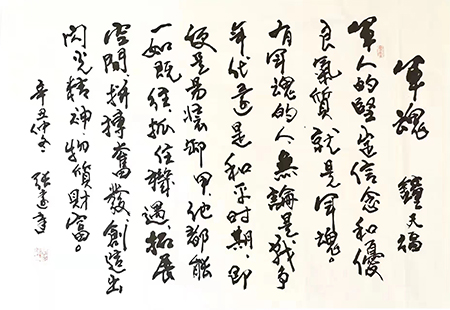 军魂 鐘天福
军人的堅定信念和優
良氣質就是军魂。
有军魂的人無論是戰争
年代還是和平时期、即
便是易裝卸甲、他都能
一如既往、抓住機遇、拓展
空間、拼搏奮發、創造出
閃光精神物質財富。
辛丑仲冬 張建